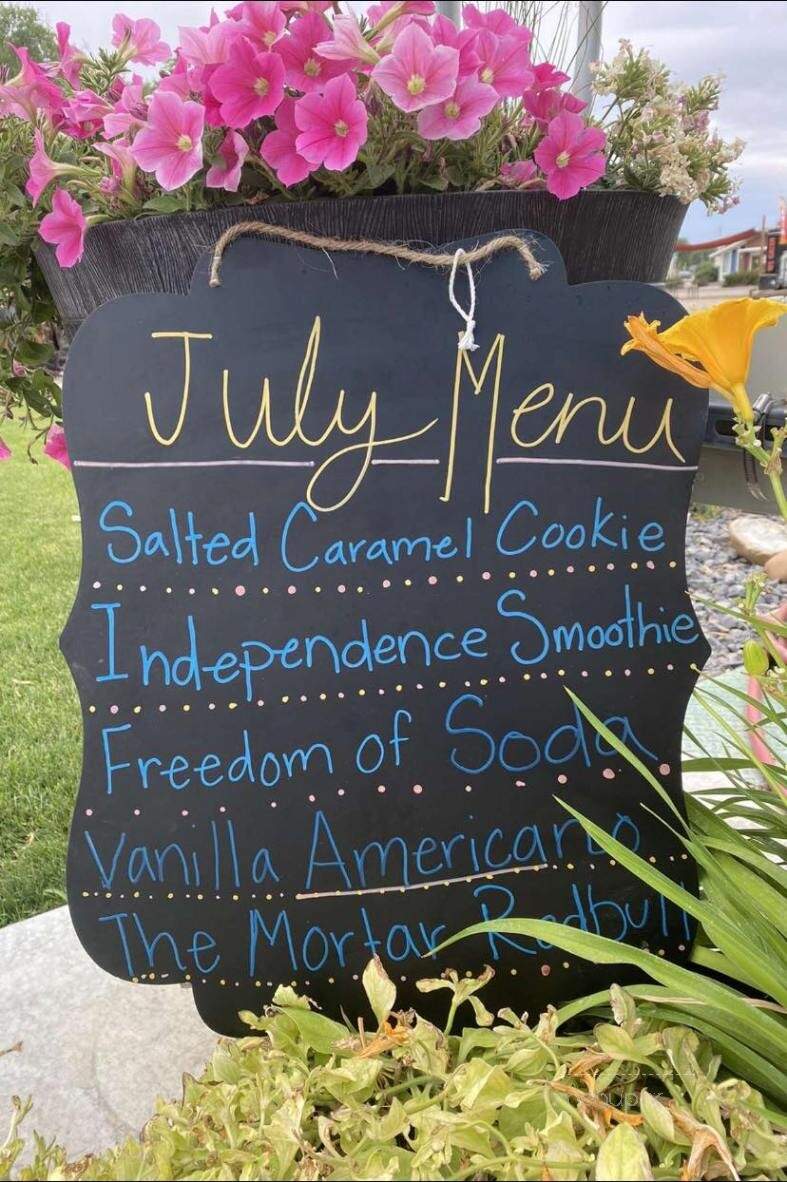 July Menu
Salted Caramel Cookie
Independence Smoothie
Freedom of Soda
Vanilla Americano
The Mortar Redbull